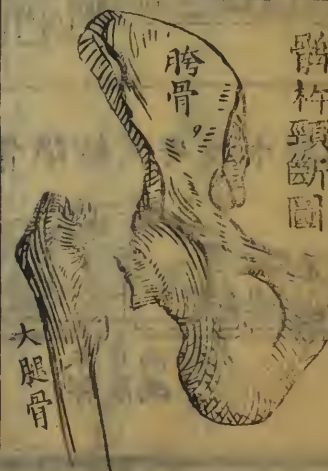 髀杵頸斷圖
胯骨
大腿骨